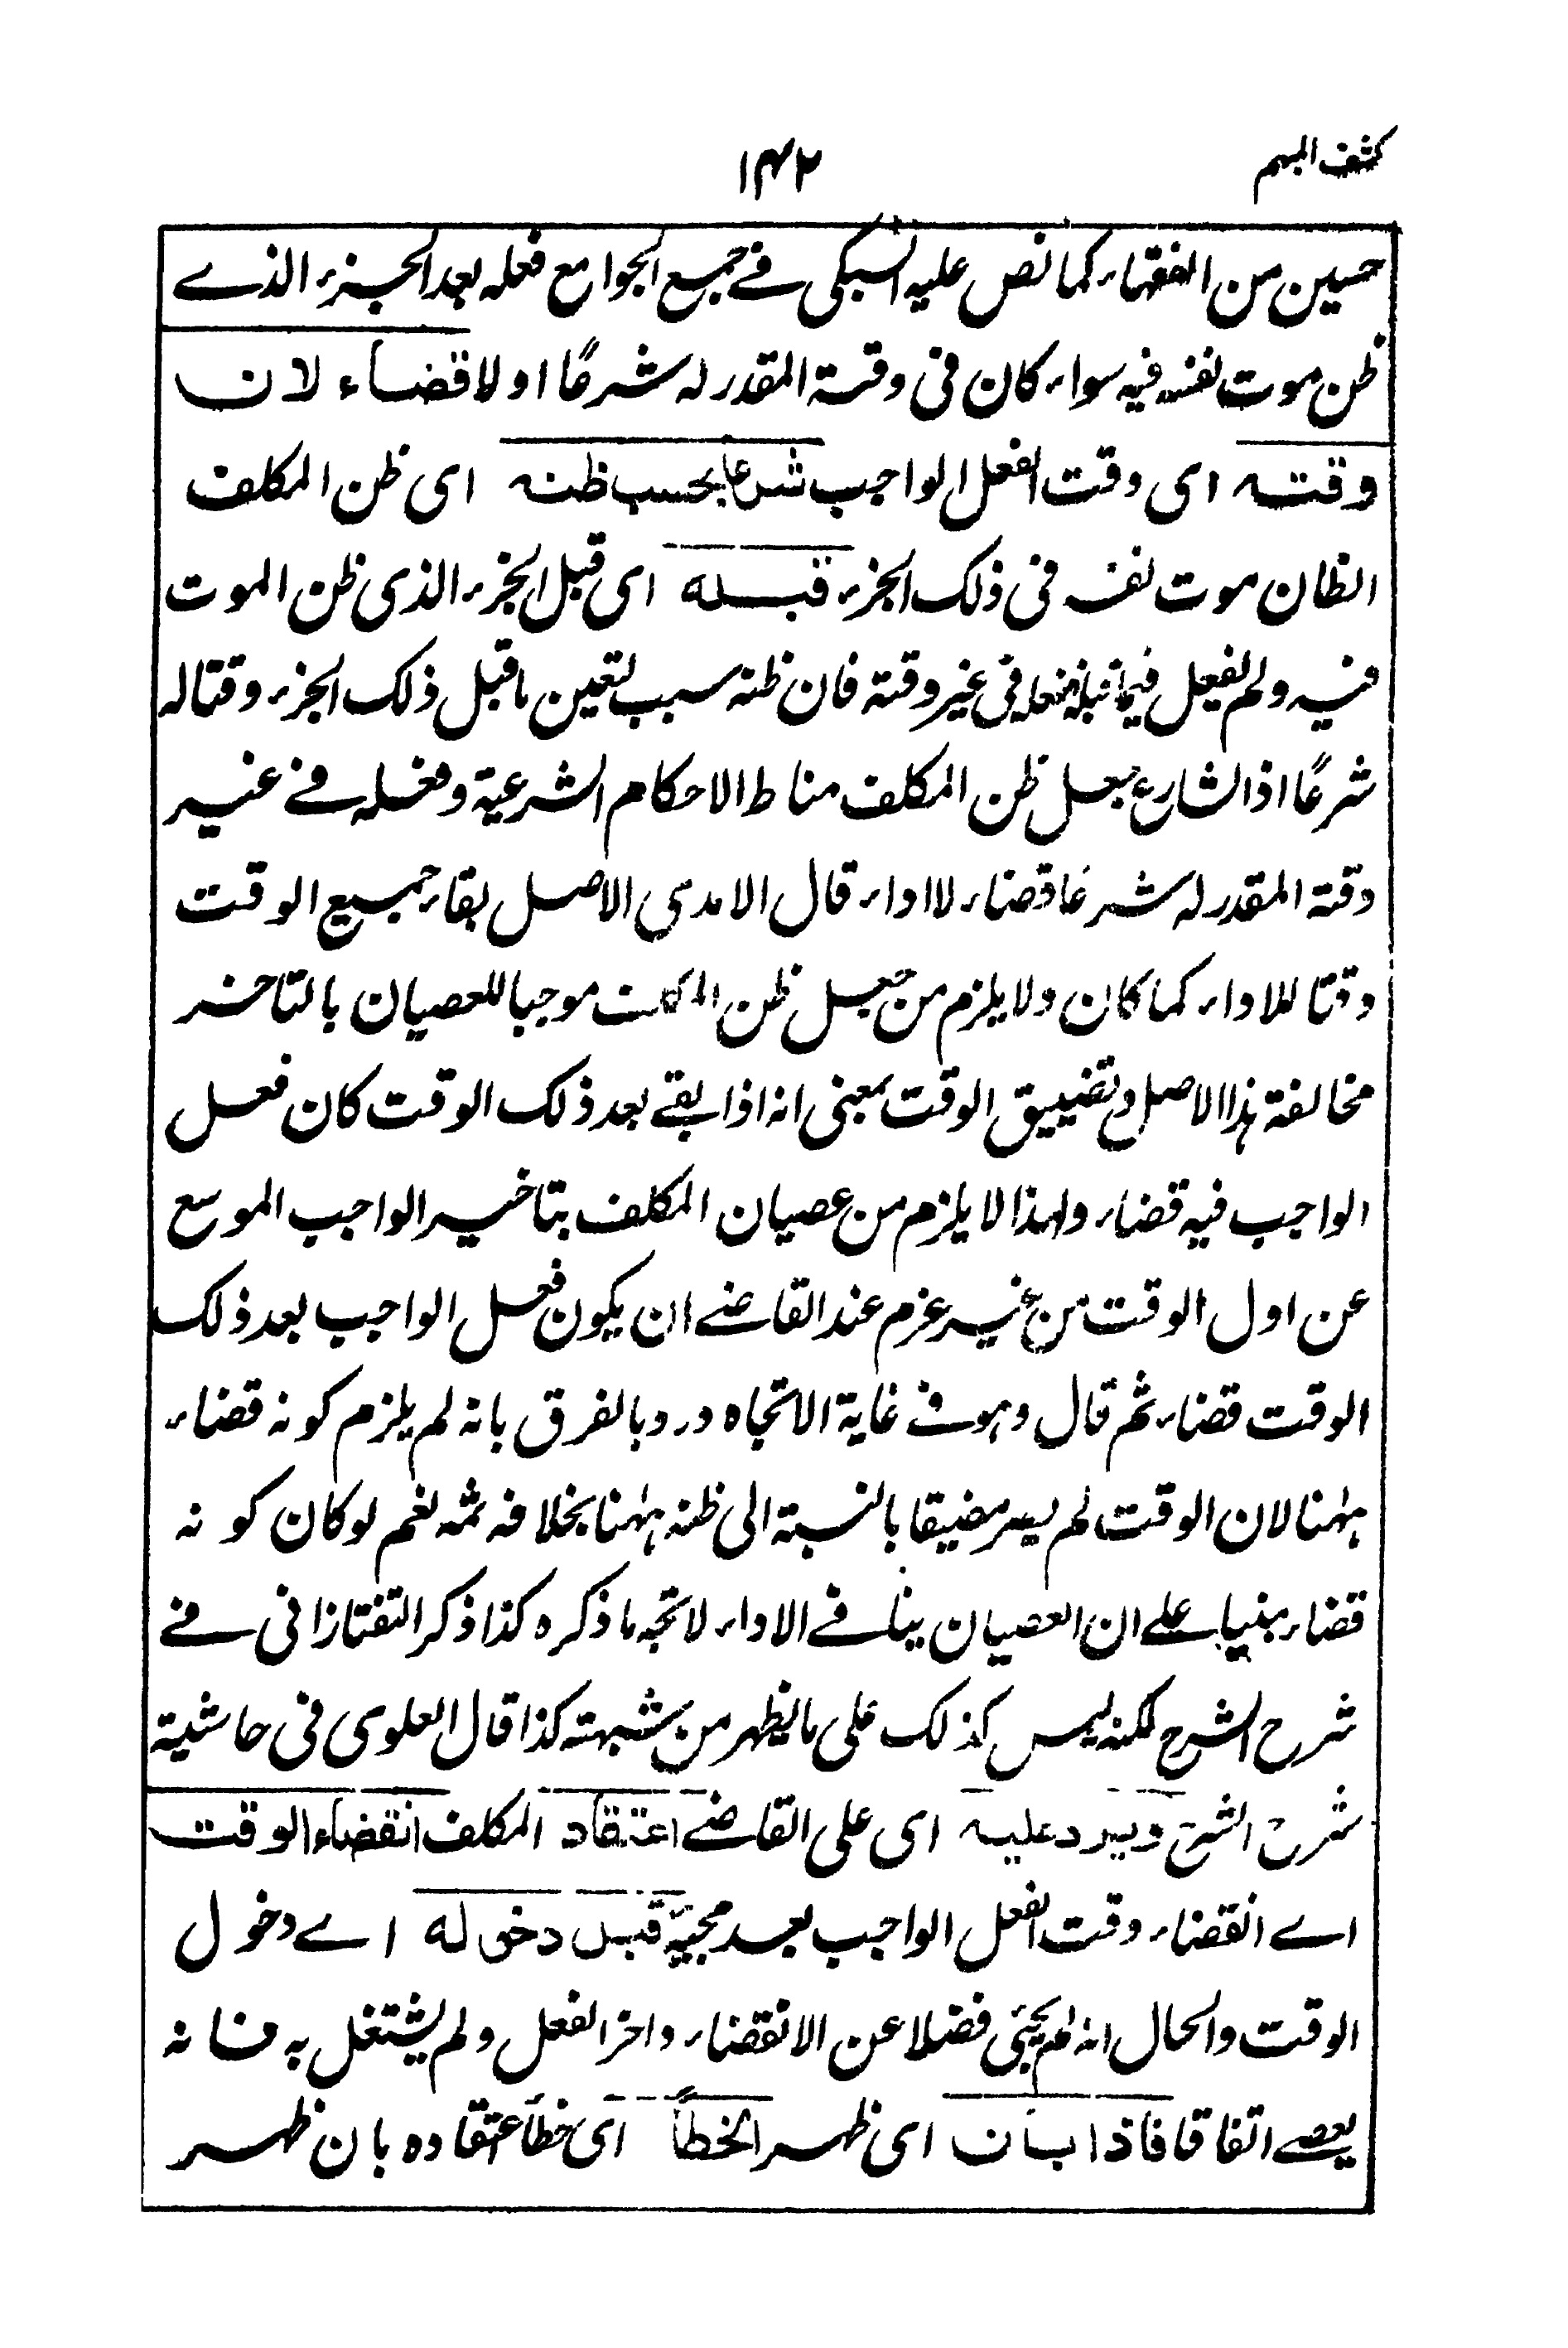 كشف المبهم
١٤٢
حسين من الفقهاء كما نص عليه السبكى فے جمع الجوامع فعله بعد الجزء الذے
ظن موت نفسه فيه سواء كان فى وقته المقدر له شرعًا او لا قضاء لان
وقته اى وقت الفعل الواجب شرعا بحسب ظنه اى ظن المكلف
الظان موت نفسه فى ذلك الجزء قبله اى قبل الجزء الذى ظن الموت
فيه ولم يفعل فيما قبله ففعله فى غير وقته فان ظنه سبب لتعين ما قبل ذلك الجزء وقتا له
شرعًا اذ الشارع جعل ظن المكلف مناط الاحكام الشرعية وفعله فے غير
وقته المقدر له شرعا قضاء لا اداء قال الامدى الاصل بقاء جميع الوقت
وقتا للاداء كما كان ولا يلزم من جعل ظن المكلف موجبا للعصيان بالتاخر
مخالفة هذا الاصل وتضييق الوقت بمعنى انه اذا بقے بعد ذلك الوقت كان فعل
الواجب فيه قضاء ولهذا لا يلزم من عصيان المكلف بتاخير الواجب الموسع
عن اول الوقت من غير عزم عند القاضے ان يكون فعل الواجب بعد ذلك
الوقت قضاء ثم قال وهو فے غاية الاتجاه ورد بالفرق بانه لم يلزم كونه قضاء
ههنا لان الوقت لم يصر مضيقا بالنسبة الى ظنه ههنا بخلافه ثمه نعم لو كان كونه
قضاء مبنيا علے ان العصيان ينافے الاداء لاتجه ما ذكره كذا ذكر التفتازانى فے
شرح الشرح لكنه ليس كذلك على ما يظهر من شبهته كذا قال العلوى فى حاشية
شرح الشرح ويرد عليه اى على القاضے اعتقاد المكلف انقضاء الوقت
اے انقضاء وقت الفعل الواجب بعد مجيئه قبل دخوله اے دخول
الوقت والحال انه لم يجئ فضلا عن الانقضاء واخر الفعل ولم يشتغل به فانه
يعصے اتفاقا فاذا بان اى ظهر الخطأ اى خطأ اعتقاده بان ظهر